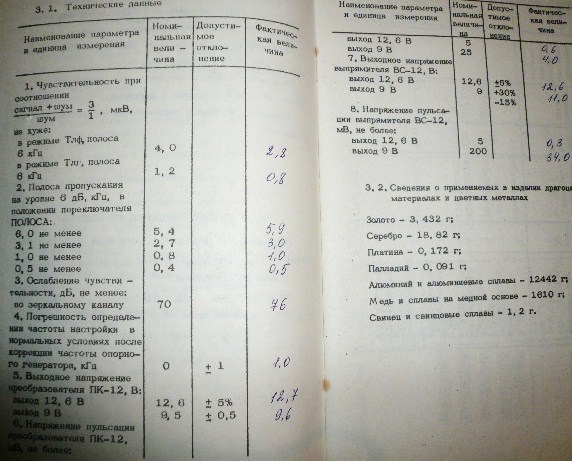 3. 1. Технические данные
Наименование параметра и единица измерения
Номинальная величина
Допустимое отклонение
Фактическая величина
1. Чувствительность при
соотношении
сигнал + шум / шум = 3 / 1 , мкВ,
не хуже:
в режиме Тлф, полоса
6 кГц 4, 0 2,8
в режиме Тлг, полоса
6 кГц 1, 2 0,8
2. Полоса пропускания
на уровне 6 дБ, кГц, в
положении переключателя
ПОЛОСА:
6, 0 не менее 5, 4 5,9
3, 1 не менее 2, 7 3,0
1, 0 не менее 0, 8 1,0
0, 5 не менее 0, 4 0,5
3. Ослабление чувстви -
тельности, дБ, не менее:
по зеркальному каналу 70 76
4. Погрешность определе-
ния частоты настройки в
нормальных условиях после
коррекции частоты опорно-
го генератора, кГц 0 ± 1 1.0
5. Выходное напряжение
преобразователя ПК-12, В:
выход 12, 6 В 12, 6 ± 5% 12,7
выход 9 В 9, 5 ± 0,5 9,6
6. Напряжение пульсации
преобразователя ПК-12,
мВ, не более:
Наименование параметра и единица измерения
Номинальная величина
Допустимое отклонение
Фактическая величина
выход 12, 6 В 5 0,6
выход 9 В 25 4,0
7. Выходное напряжение
выпрямителя ВС-12, В:
выход 12, 6 В 12,6 ±5% 12,6
выход 9 В 9 +30% 11,0
-15%
8. Напряжение пульса-
ции выпрямителя ВС-12,
мВ, не более:
выход 12, 6 В 5 0,3
выход 9 В 200 34,0
3, 2. Сведения о применяемых в изделии драгоце
материалах и цветных металлах
Золото - 3, 432 г;
Серебро - 18, 82 г;
Платина - 0, 172 г;
Палладий - 0, 091 г;
Алюминий и алюминиевые сплавы - 12442 г;
Медь и сплавы на медной основе - 1610 г;
Свинец и свинцовые сплавы - 1, 2 г.